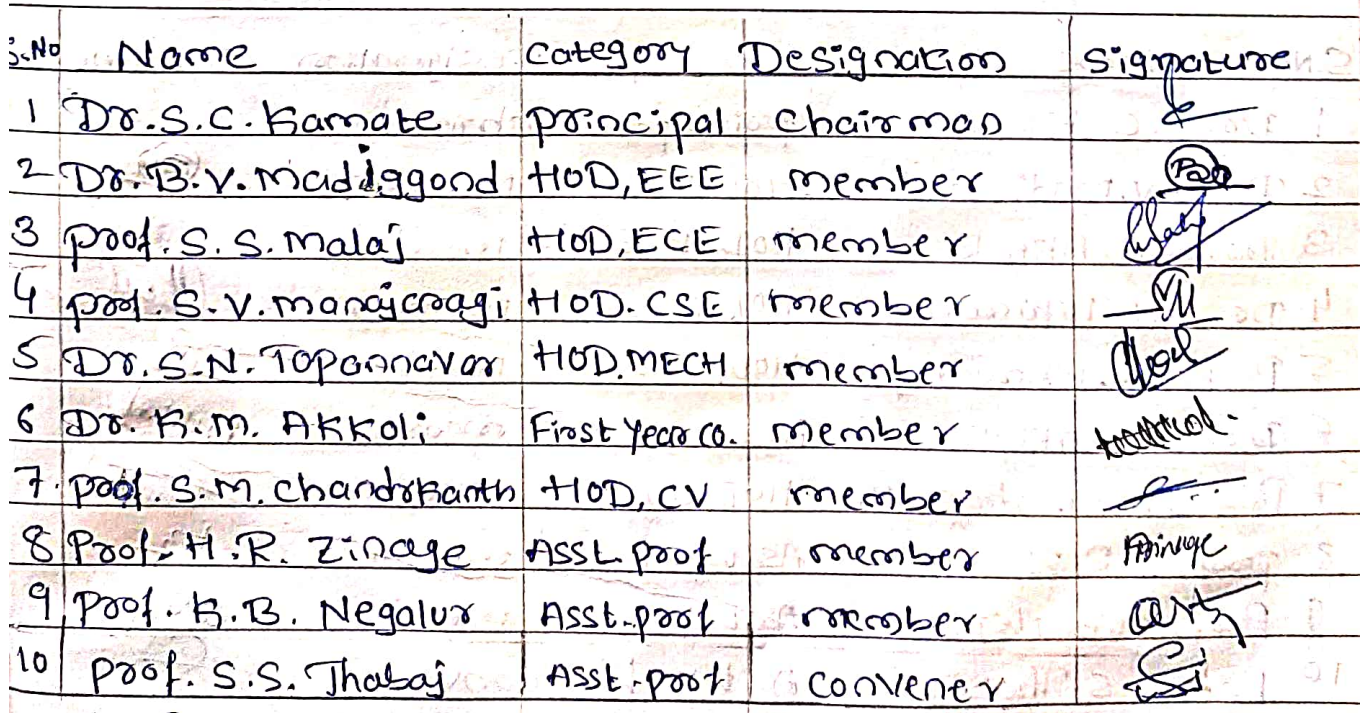 S.No Name Category Designation Signature
1 Dr. S.C. Kamate principal Chairman
2 Dr. B.V. Madiggond HOD, EEE member
3 prof. S. S. Malaj HOD, ECE member
4 prof. S.V. Manajcnagi HOD. CSE member
5 Dr. S.N. Topannavar HOD. MECH member
6 Dr. K.M. AKKoli First Year co. member
7. prof. S.M. Chandrkanth HOD, CV member
8 Prof. H.R. Zinage Asst. prof member
9 Prof. K.B. Negalur Asst. prof member
10 prof. S.S. Thabaj Asst. prof convener